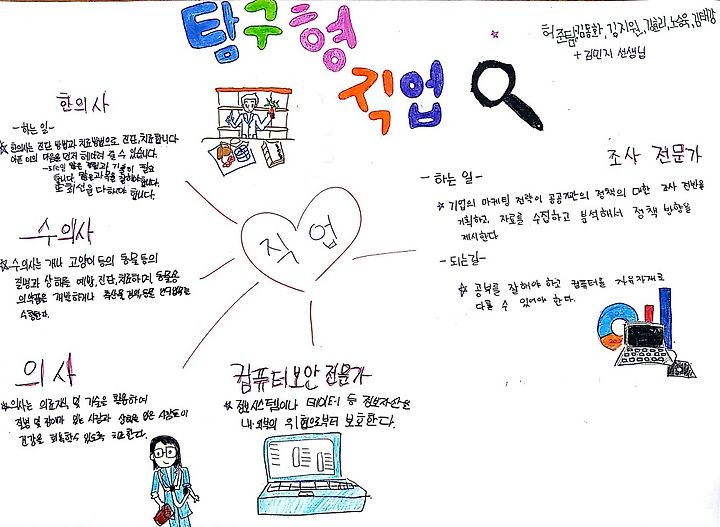 탐구형
직업
허준팀:김동화, 김지원, 김효리, 노승욱, 김태강
+ 김민지 선생님
한의사
-하는 일-
한의사는 진단 방법과 치료방법으로 진단, 치료합니다
아픈 이의 마음을 먼저 헤아려 줄 수 있습니다.
많은 과목을 잘해야합니다.
또 최선을 다해야 합니다.
수의사
수의사는 개나 고양이 등의 동물 등의
질병과 상해를 예방, 진단, 치료하며, 동물용
의약품을 개발하거나
수행한다.
의사
의사는 의료지식 및 기술을 활용하여
질병 및 장애가 있는 사람과 상해를 입은 사람들이
건강을 회복할수 있도록 치료한다.
직업
컴퓨터보안 전문가
정보시스템이나 데이터 등 정보자산을
내·외부의 위협으로부터 보호한다.
조사 전문가
- 하는 일 -
기업의 마케팅 전략이 공공기관의 정책의 대한 조사 전반을
기획하고, 자료를 수집하고 분석해서 정책 방향을
제시한다
- 되는길 -
공부를 잘해야 하고 컴퓨터를 자유자재로
다룰 수 있어야 한다.